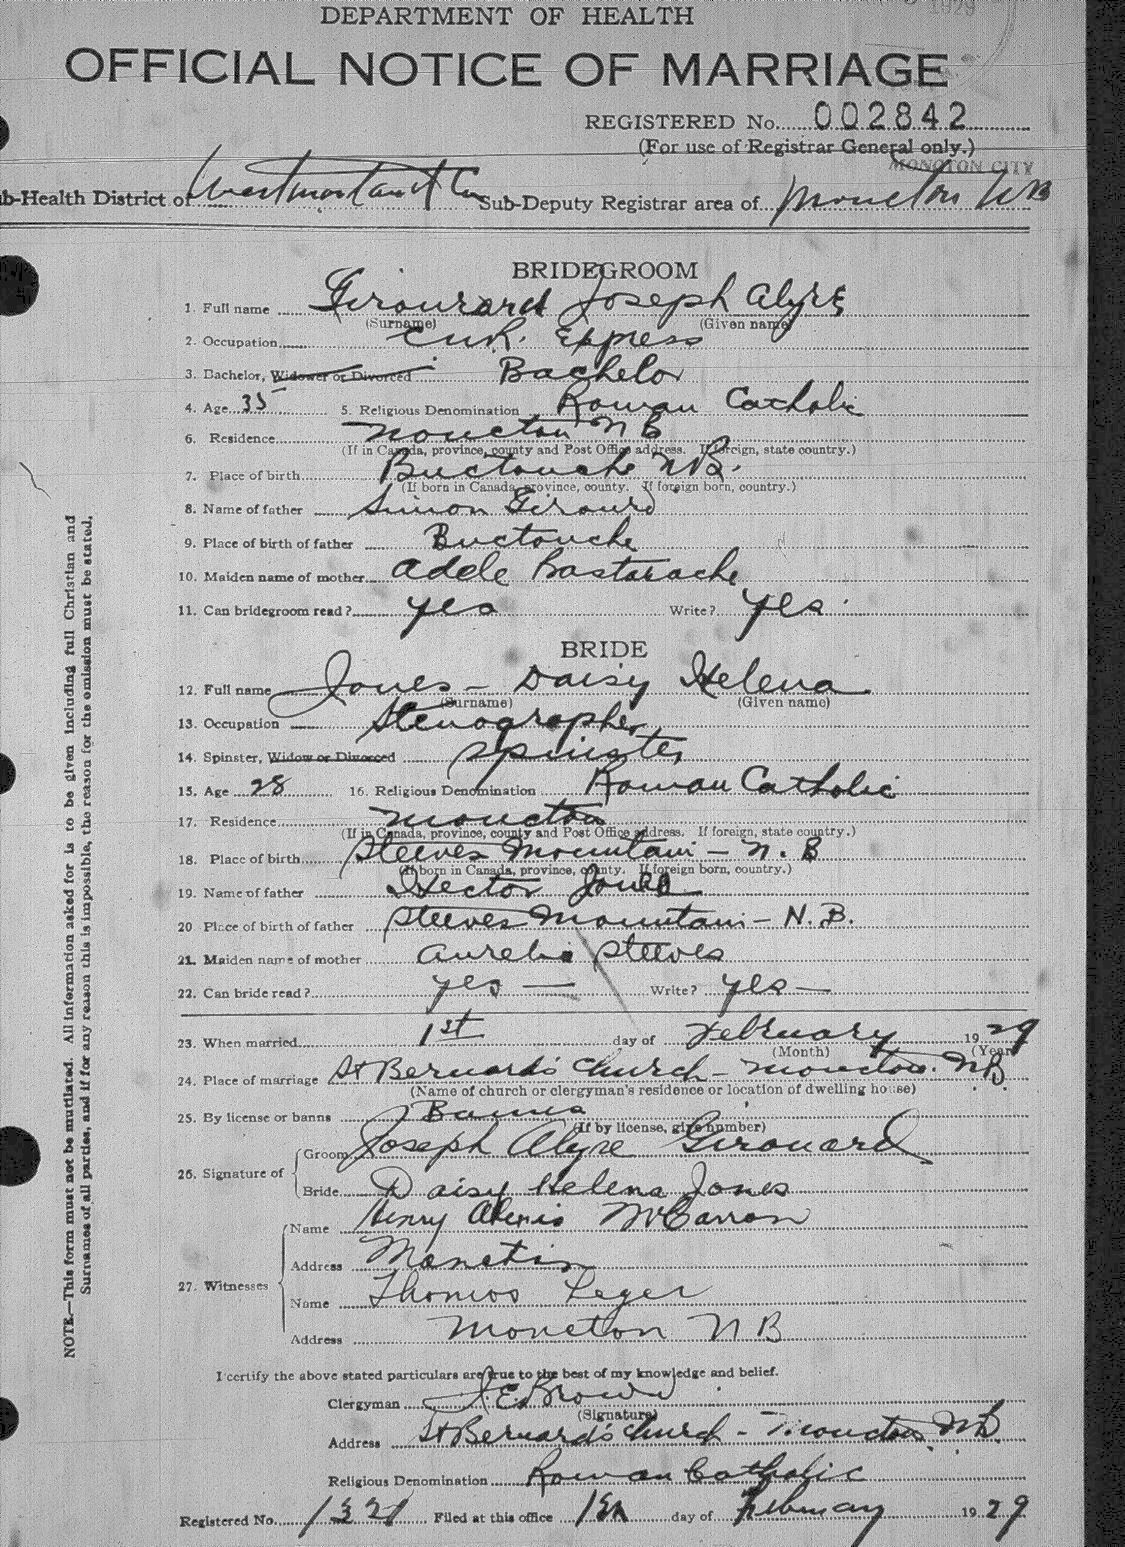 1929
DEPARTMENT OF HEALTH
OFFICIAL NOTICE OF MARRIAGE
REGISTERED No. 002842
(For use of Registrar General only.)
MONCTON CITY
b-Health District of Westmorland Co Sub-Deputy Registrar area of Moncton NB
BRIDEGROOM
1. Full name Girouard Joseph Alyre
(Surname) (Given name)
2. Occupation C.N.R. Express
3. Bachelor, Widower or Divorced Bachelor
4. Age 35 5. Religious Denomination Roman Catholic
6. Residence Moncton N B
(If in Canada, province, county and Post Office address. If foreign, state country.)
7. Place of birth Buctouche N.B.
(If born in Canada, province, county. If foreign born, country.)
8. Name of father Simon Girouard
9. Place of birth of father Buctouche
10. Maiden name of mother Adele Bastarache
11. Can bridegroom read? yes Write? yes
BRIDE
12. Full name Jones - Daisy Helena
(Surname) (Given name)
13. Occupation Stenographer
14. Spinster, Widow or Divorced Spinster
15. Age 28 16. Religious Denomination Roman Catholic
17. Residence Moncton
(If in Canada, province, county and Post Office address. If foreign, state country.)
18. Place of birth Steeves Mountain - N. B
(If born in Canada, province, county. If foreign born, country.)
19. Name of father Hector Jones
20 Place of birth of father Steeves Mountain - N. B.
21. Maiden name of mother Aurelia Steeves
22. Can bride read? yes — Write? yes —
23. When married 1st day of February 1929
(Month) (Year)
24. Place of marriage St Bernard's Church - Moncton. N.B.
(Name of church or clergyman's residence or location of dwelling house)
25. By license or banns Banns
(If by license, give number)
26. Signature of Groom Joseph Alyre Girouard
Bride Daisy Helena Jones
27. Witnesses Name Henry Alexis McCarron
Address Moncton
Name Thomas Leger
Address Moncton N B
I certify the above stated particulars are true to the best of my knowledge and belief.
Clergyman Brown
(Signature)
Address St Bernard's Church - Moncton N.B.
Religious Denomination Roman Catholic
Registered No. Filed at this office day of February 1929
NOTE.—This form must not be mutilated. All information asked for is to be given including full Christian and
Surnames of all parties, and if for any reason this is impossible, the reason for the emission must be stated.